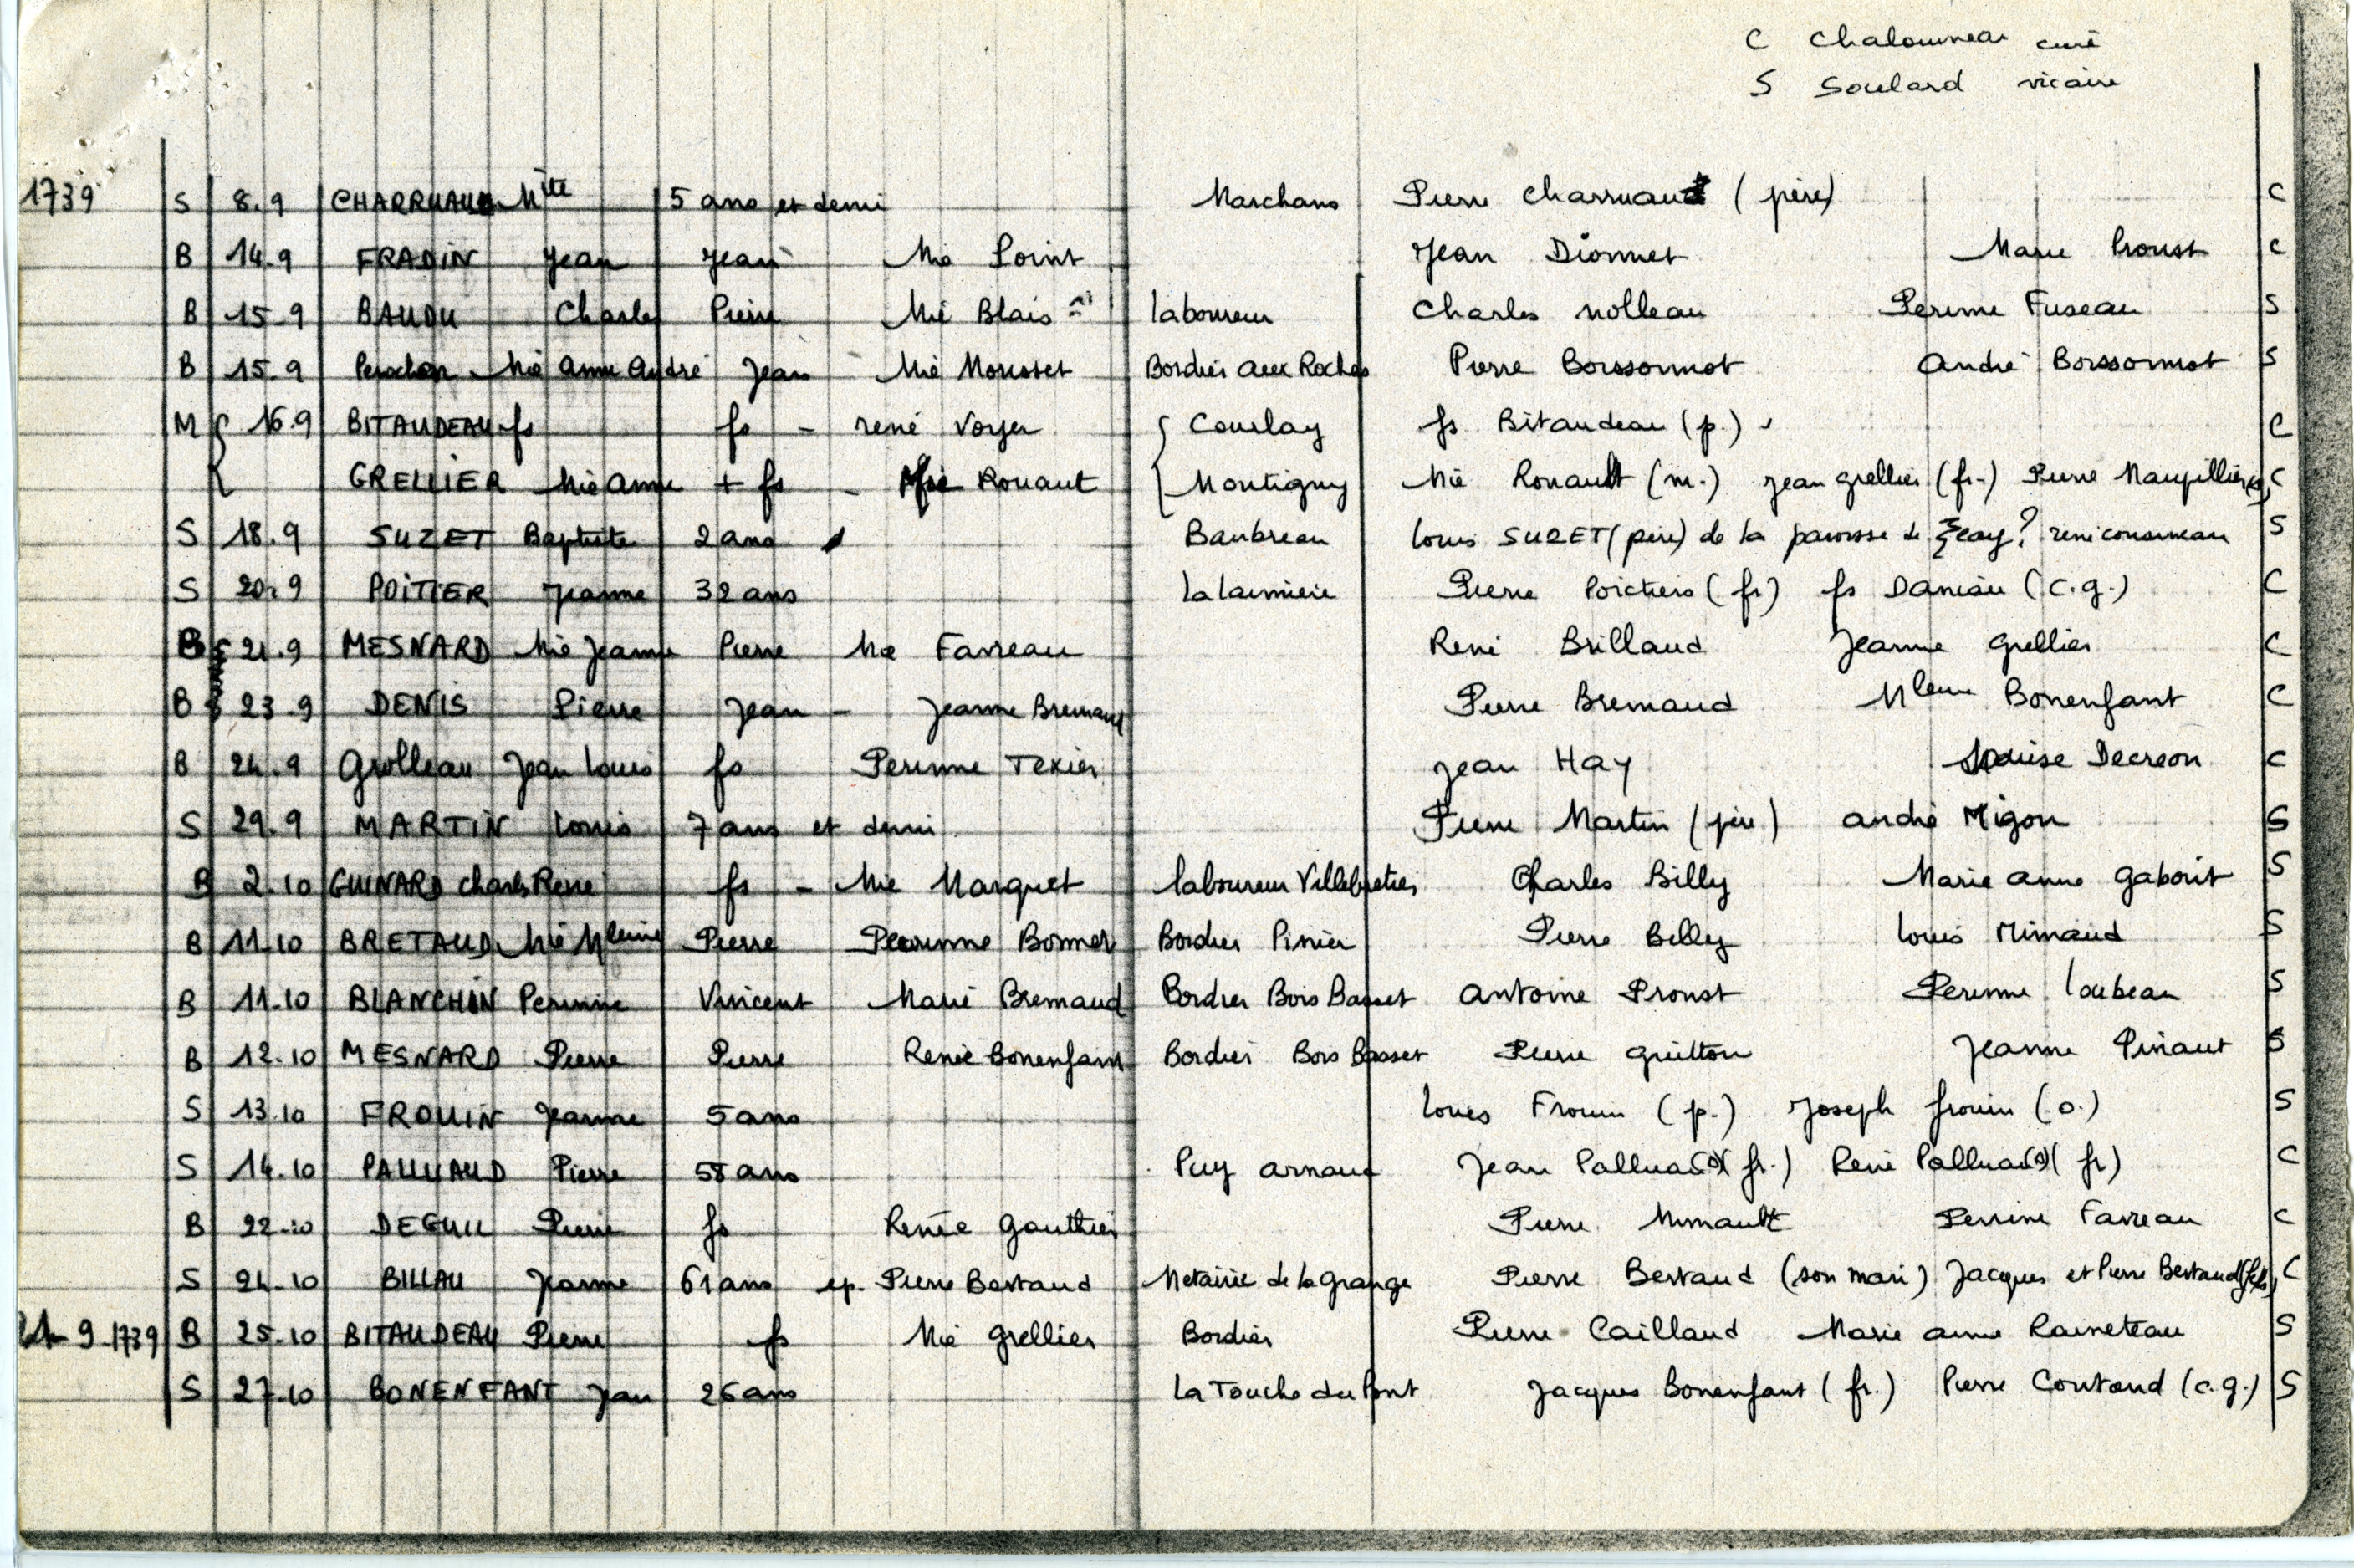 C Chalouneau curé
S Soulard vicaire
1739 S 8.9 CHARRUAUD Mite 5 ans et demi Marchans Pierre Charruaud (père) C
B 14.9 FRADIN Jean Jean Mie Loint Jean Dionnet Marie Proust C
B 15.9 BAUDU Charles Pierre Mie Blais laboureur Charles Nolleau Perinne Fuseau S
B 15.9 Perochon Mie Anne André Jean Mie Mousset Bordier aux Roches Pierre Boissonnot André Boissonnot S
M { 16.9 BITAUDEAU fs fs - rené Voyer { Courlay fs Bitaudeau (p.) C
GRELLIER Mie Anne + fs - Mie Rouaut Montigny Mie Rouault (m.) Jean grellier (fr.) Pierre Maupillier C
S 18.9 SUZET Baptiste 2 ans Baubreau Louis SUZET (père) de la paroisse de Sceay? S
S 20.9 POITIER Jeanne 32 ans La Laimière Pierre Poictiers (fr) fs Daniau (c.g.) C
B 21.9 MESNARD Mie Jeanne Pierre Mie Favreau René Brillaud Jeanne Grellier C
B 23.9 DENIS Pierre Jean - Jeanne Bremaud Pierre Bremaud Mleine Bonenfant C
B 24.9 Grolleau Jean Louis fs Perinne Texier Jean HAY Louise Decreon C
S 29.9 MARTIN Louis 7 ans et demi Pierre Martin (père) André Migon S
B 2.10 GUINARD Charles René fs - Mie Marquet laboureur Villebretier Charles Billy Marie Anne Gaborit S
B 11.10 BRETAUD Mie Mleine Pierre Perinne Bonnet Bordier Pinier Pierre Billy Louis Mimaud S
B 11.10 BLANCHIN Perinne Vincent Marie Bremaud Bordier Bois Basset Antoine Proust Perinne Loubeau S
B 12.10 MESNARD Pierre Pierre Renée Bonenfant Bordier Bois Basset Pierre Guitton Jeanne Pinaut S
S 13.10 FROUIN Jeanne 5 ans Louis Frouin (p.) Joseph frouin (o.) S
S 14.10 PALLUAUD Pierre 58 ans Puy arnaud Jean Pallua(d)(fr.) René Pallua(d)(fr) C
B 22.10 DEGUIL Pierre fs Renée Gauthier Pierre Mimault Perrine Favreau C
S 24.10 BILLAU Jeanne 61 ans ep. Pierre Bertaud Métairie de la Grange Pierre Bertaud (son mari) Jacques et Pierre Bertaud (fils) C
9-1739 B 25.10 BITAUDEAU Pierre fs Mie Grellier Bordier Pierre Caillaud Marie Anne Raineteau S
S 27.10 BONENFANT Jean 26 ans La Touche du Pont Jacques Bonenfant (fr.) Pierre Coutand (c.g.) S